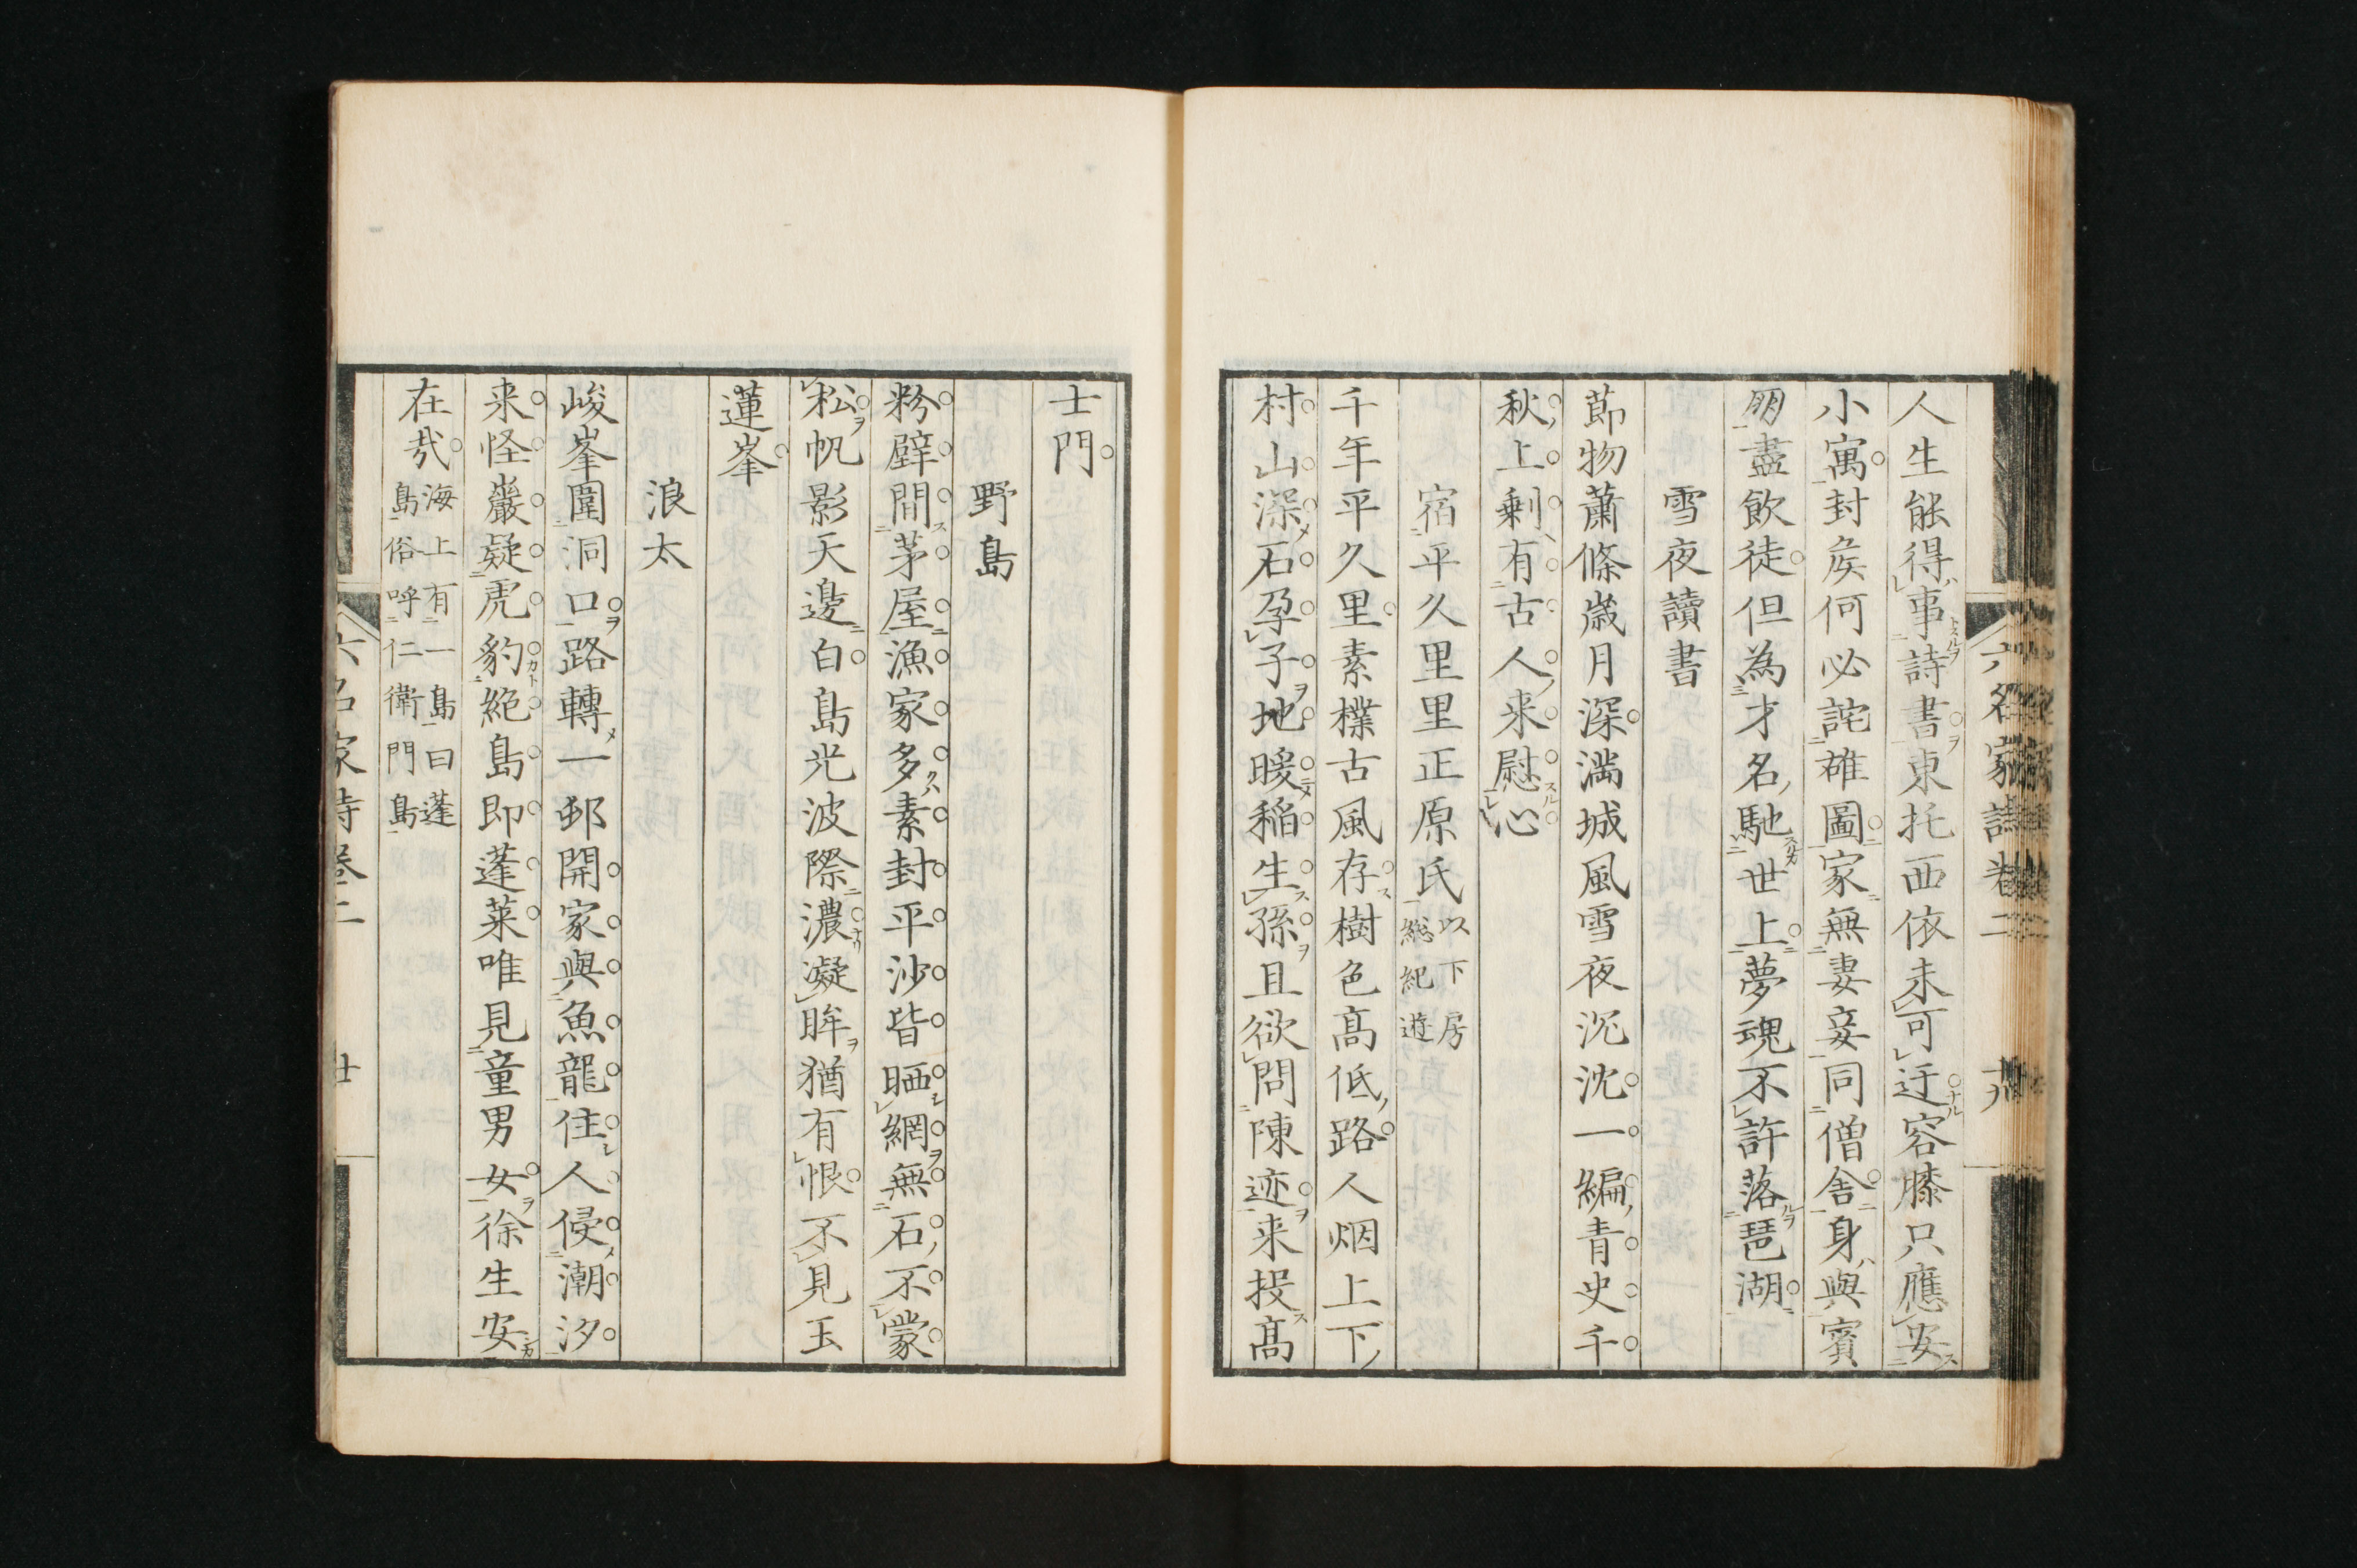 人生能得事詩書東托西依未可迂容膝只應安
小寓封矦何必詫雄圖家無妻妾同僧舎身與賓
朋盡飲徒但為才名馳世上夢魂不許落琶湖
雪夜讀書
莭物蕭條歳月深満城風雪夜沉沈一編青史千
秋上剰有古人来慰心
宿平久里里正原氏以下房総紀遊
千年平久里素樸古風存樹色髙低路人烟上下
村山深石孕子地暖稲生孫且欲問陳迹来投髙
士門
野島
粉壁間茅屋漁家多素封平沙皆晒網無石不蒙
松帆影天邊白島光波際濃凝眸猶有恨不見玉
蓮峯
浪太
峻峯圍洞口路轉一邨開家與魚龍住人侵潮汐
来怪巖疑虎豹絶島即蓬莱唯見童男女徐生安
在㦲海上有一島曰蓬島俗呼仁衛門島
六名家詩巻二